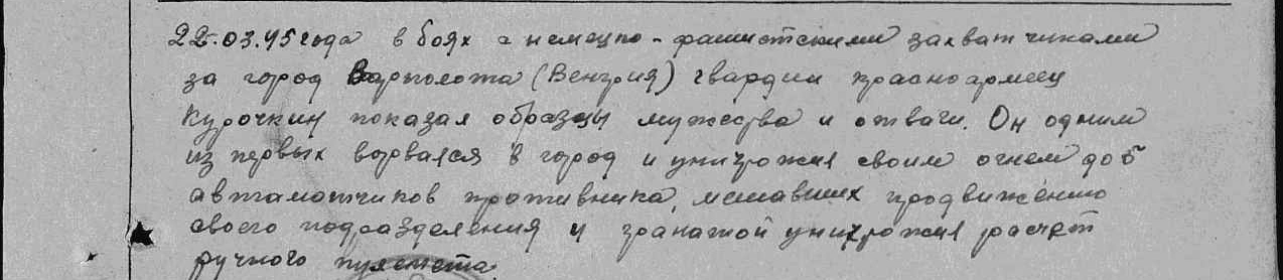 22.03.45 года в боях с немецко-фашистскими захватчиками
за город Варполота (Венгрия) гвардии красноармеец
Курочкин показал образцы мужества и отваги. Он одним
из первых ворвался в город и уничтожил своим огнем до 5
автаматчиков противника, мешавших продвижению
своего подразделения и гранатой уничтожил расчет
ручного пулемета.